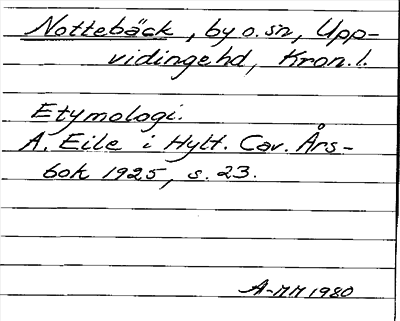 Nottebäck, by o. sn, Upp-
vidinge hd, Kron. l.
Etymologi.
A. Eile i Hylt. Cav. Års-
bok 1925, s. 23.
A-MM 1980